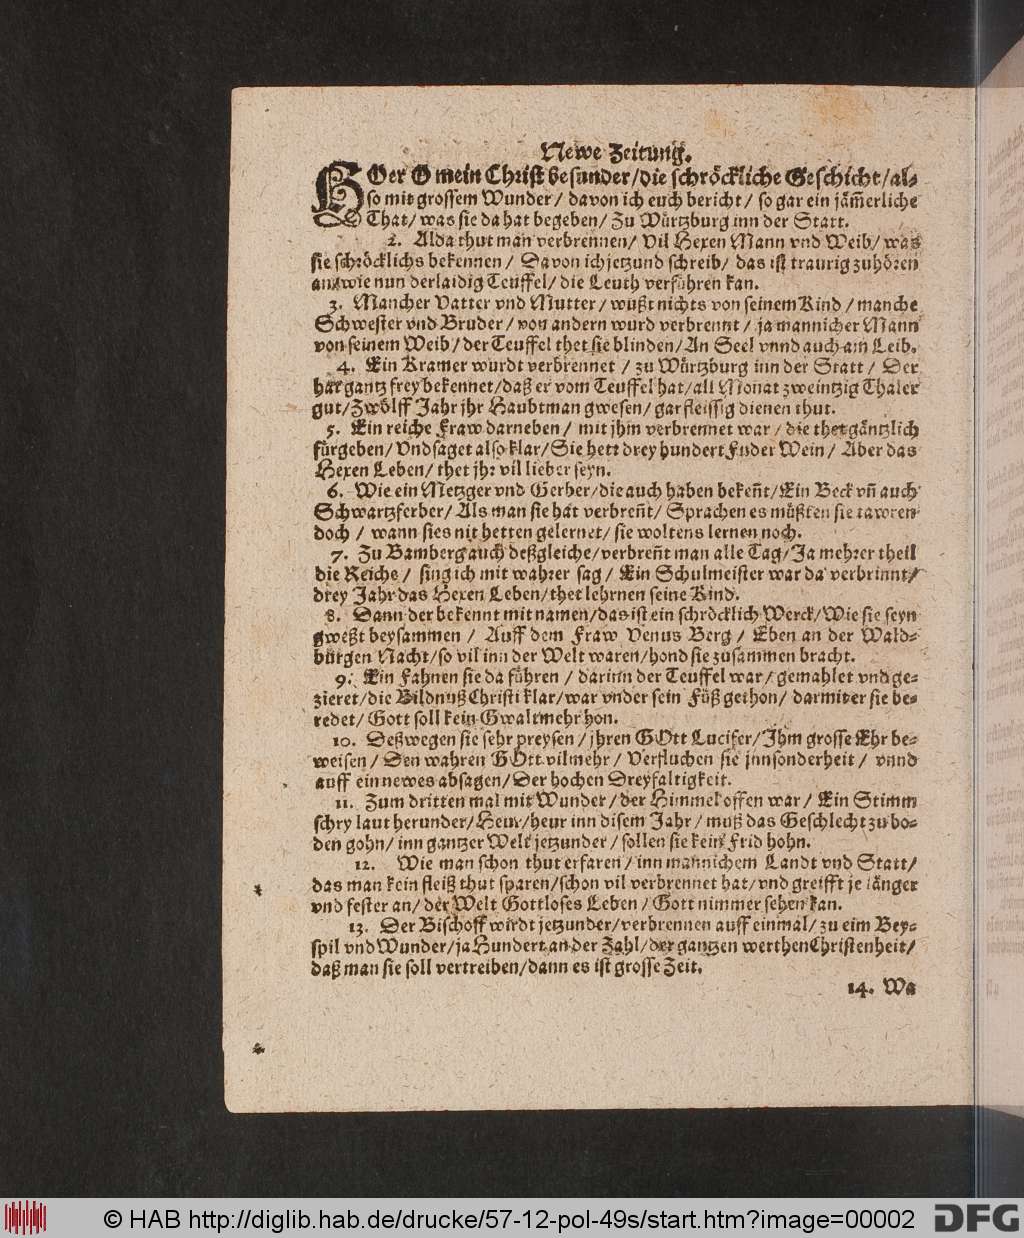 Newe Zeitung.
HÖer O mein Christ besunder/die schröckliche Geschicht/al-
so mit grossem Wunder/ davon ich euch bericht/ so gar ein jäm̃erliche
That/ was sie da hat begeben/ Zu Würtzburg inn der Statt.
2. Alda thut man verbrennen/ Vil Hexen Mann vnd Weib/ was
sie schröcklichs bekennen/ Davon ich jetzund schreib/ das ist traurig zuhören
an/wie nun der laidig Teuffel/ die Leuth verführen kan.
3. Mancher Vatter vnd Mutter/ wußt nichts von seinem Kind/ manche
Schwester vnd Bruder/ von andern wurd verbrennt/ ja mannicher Mann
von seinem Weib/ der Teuffel thet sie blinden/An Seel vnnd auch am Leib.
4. Ein Kramer wurdt verbrennet/ zu Würtzburg inn der Statt/ Der
hat gantz frey bekennet/daß er vom Teuffel hat/all Monat zweintzig Thaler
gut/Zwölff Jahr jhr Haubtman gwesen/ gar fleissig dienen thut.
5. Ein reiche Fraw darneben/ mit jhm verbrennet war/ die thet gäntzlich
fürgeben/ Vnd saget also klar/ Sie hett drey hundert Fuder Wein/ Aber das
Hexen Leben/ thet jhr vil lieber seyn.
6. Wie ein Metzger vnd Gerber/die auch haben bekeñt/Ein Beck vñ auch
Schwartzferber/ Als man sie hat verbreñt/ Sprachen es müßten sie tawren
doch/ wann sies nit hetten gelernet/ sie woltens lernen noch.
7. Zu Bamberg auch deßgleiche/verbreñt man alle Tag/Ja mehrer theil
die Reiche/ sing ich mit wahrer sag/ Ein Schulmeister war da verbrinnt/
drey Jahr das Hexen Leben/thet lehrnen seine Kind.
8. Dann der bekennt mit namen/das ist ein schröcklich Werck/Wie sie seyn
gweßt beysammen/ Auff dem Fraw Venus Berg/ Eben an der Wald-
bürgen Nacht/so vil inn der Welt waren/hond sie zusammen bracht.
9. Ein Fahnen sie da führen/ darinn der Teuffel war/ gemahlet vnd ge-
zieret/die Bildnuß Christi klar/war vnder sein Füß gethon/ darmit er sie be-
redet/ Gott soll kein Gwalt mehr hon.
10. Deßwegen sie sehr preysen/ jhren GOtt Lucifer/Jhm grosse Ehr be-
weisen/ Den wahren GOtt vilmehr/ Verfluchen sie jnnsonderheit/ vnnd
auff ein newes absagen/Der hochen Dreyfaltigkeit.
11. Zum dritten mal mit Wunder/der Himmel offen war/ Ein Stimm
schry laut herunder/Heur/heur inn disem Jahr/ muß das Geschlecht zu bo-
den gohn/ inn gantzer Welt jetzunder/sollen sie kein Frid hohn.
12. Wie man schon thut erfaren/inn mannichem Landt vnd Statt/
das man kein fleiß thut sparen/schon vil verbrennet hat/vnd greifft je länger
vnd fester an/ der Welt Gottloses Leben/ Gott nimmer sehen kan.
13. Der Bischoff wirdt jetzunder/verbrennen auff einmal/zu eim Bey-
spil vnd Wunder/ja Hundert an der Zahl/der gantzen werthen Christenheit/
daß man sie soll vertreiben/dann es ist grosse Zeit.
14. Wa
© HAB http://diglib.hab.de/drucke/57-12-pol-49s/start.htm?image=00002
DFG